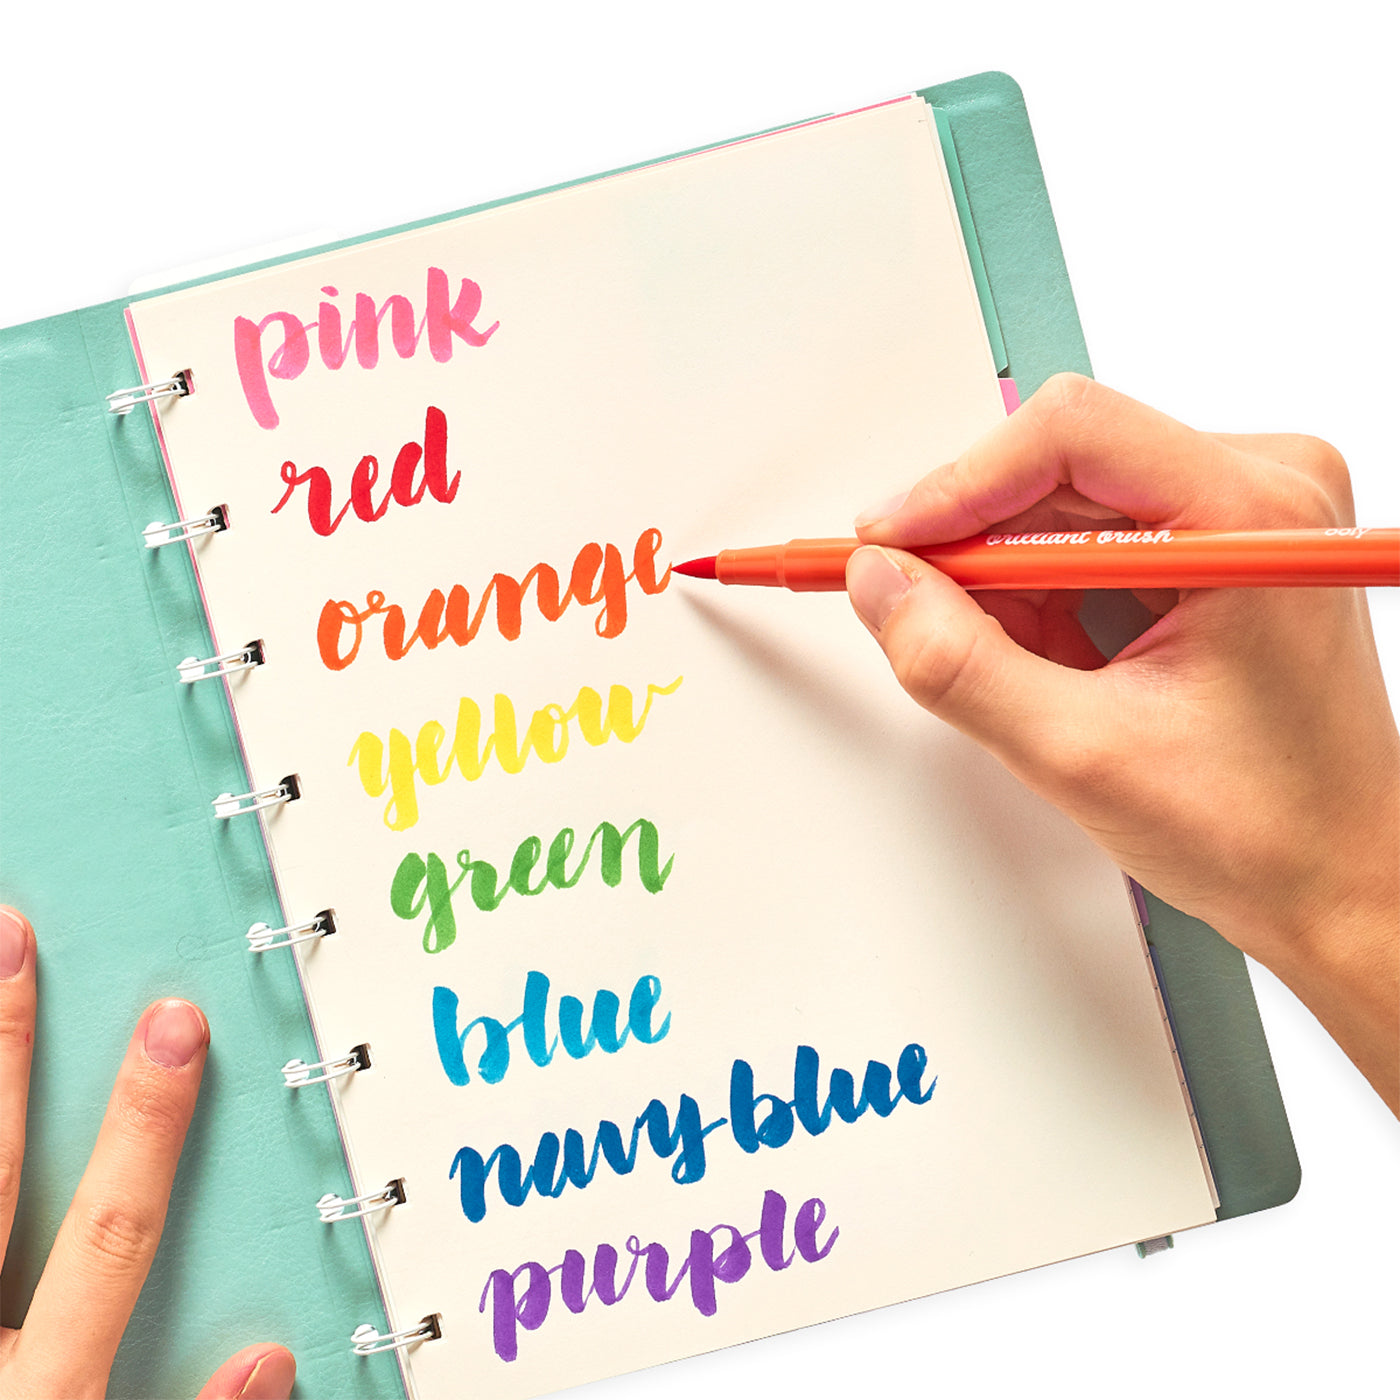 pink
red
orange
brilliant brush
ooly
yellow
green
blue
navy blue
purple